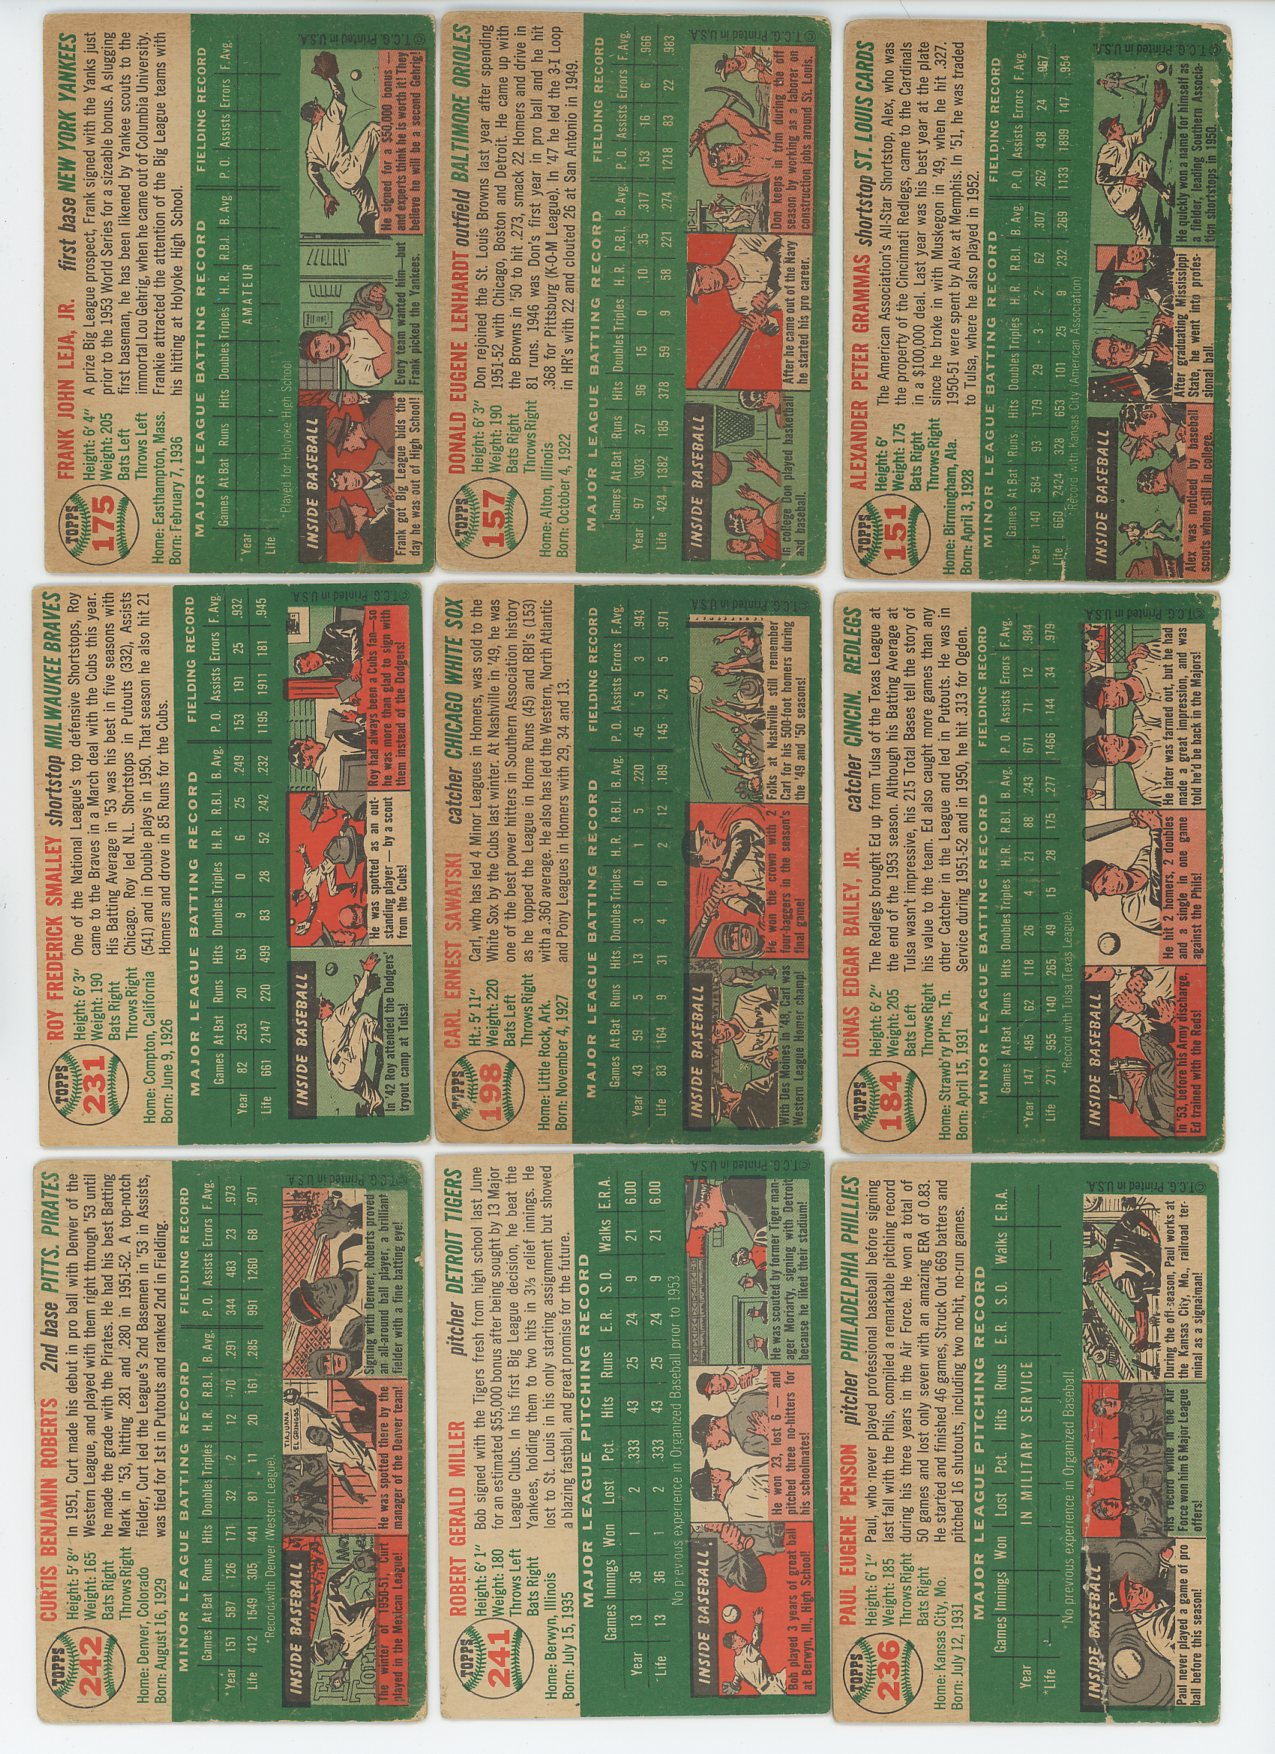 TOPPS
242
CURTIS BENJAMIN ROBERTS 2nd base PITTS. PIRATES
Height: 5' 8"
Weight: 165
Bats Right
Throws Right
Home: Denver, Colorado
Born: August 16, 1929
In 1951, Curt made his debut in pro ball with Denver of the
Western League, and played with them right through '53 until
he made the grade with the Pirates. He had his best Batting
Mark in '53, hitting .281 and .280 in 1951-52. A top-notch
fielder, Curt led the League's 2nd Basemen in '53 in Assists,
was tied for 1st in Putouts and ranked 2nd in Fielding.
MINOR LEAGUE BATTING RECORD FIELDING RECORD
Games At Bat Runs Hits Doubles Triples H.R. R.B.I. B. Avg. P. O. Assists Errors F. Avg.
*Year 151 587 126 171 32 2 12 70 .291 344 483 23 .973
Life 412 1549 305 441 81 11 20 161 .285 991 1260 68 .971
*Record with Denver (Western League).
INSIDE BASEBALL
The winter of 1950-51, Curt
played in the Mexican League!
TIJUANA
EL GRINGOS
He was spotted there by the
manager of the Denver team!
Signing with Denver, Roberts proved
an all-around ball player, a brilliant
fielder with a fine batting eye!
© T.C.G. Printed in U.S.A.
TOPPS
231
ROY FREDERICK SMALLEY shortstop MILWAUKEE BRAVES
Height: 6' 3"
Weight: 190
Bats Right
Throws Right
Home: Compton, California
Born: June 9, 1926
One of the National League's top defensive Shortstops, Roy
came to the Braves in a March deal with the Cubs this year.
His Batting Average in '53 was his best in five seasons with
Chicago. Roy led N.L. Shortstops in Putouts (332), Assists
(541) and in Double plays in 1950. That season he also hit 21
Homers and drove in 85 Runs for the Cubs.
MAJOR LEAGUE BATTING RECORD FIELDING RECORD
Games At Bat Runs Hits Doubles Triples H.R. R.B.I. B. Avg. P. O. Assists Errors F. Avg.
Year 82 253 20 63 9 0 6 25 .249 153 191 25 .932
Life 661 2147 220 499 83 28 52 242 .232 1195 1911 181 .945
INSIDE BASEBALL
In '42 Roy attended the Dodgers'
tryout camp at Tulsa!
He was spotted as an out-
standing player — by a scout
from the Cubs!
Roy had always been a Cubs fan—so
he was more than glad to sign with
them instead of the Dodgers!
© T.C.G. Printed in U.S.A.
TOPPS
175
FRANK JOHN LEJA, JR. first base NEW YORK YANKEES
Height: 6' 4"
Weight: 205
Bats Left
Throws Left
Home: Easthampton, Mass.
Born: February 7, 1936
A prize Big League prospect, Frank signed with the Yanks just
prior to the 1953 World Series for a sizeable bonus. A slugging
first baseman, he has been likened by Yankee scouts to the
immortal Lou Gehrig, when he came out of Columbia University.
Frankie attracted the attention of the Big League teams with
his hitting at Holyoke High School.
MAJOR LEAGUE BATTING RECORD FIELDING RECORD
Games At Bat Runs Hits Doubles Triples H.R. R.B.I. B. Avg. P. O. Assists Errors F. Avg.
*Year AMATEUR
Life
*Played for Holyoke High School
INSIDE BASEBALL
Frank got Big League bids the
day he was out of High School!
Every team wanted him—but
Frank picked the Yankees.
He signed for a $50,000 bonus —
and experts think he is worth it! They
believe he will be a second Gehrig!
© T.C.G. Printed in U.S.A.
TOPPS
241
ROBERT GERALD MILLER pitcher DETROIT TIGERS
Height: 6' 1"
Weight: 180
Throws Left
Bats Right
Home: Berwyn, Illinois
Born: July 15, 1935
Bob signed with the Tigers fresh from high school last June
for an estimated $55,000 bonus after being sought by 13 Major
League Clubs. In his first Big League decision, he beat the
Yankees, holding them to two hits in 3⅓ relief innings. He
lost to St. Louis in his only starting assignment but showed
a blazing fastball, and great promise for the future.
MAJOR LEAGUE PITCHING RECORD
Games Innings Won Lost Pct. Hits Runs E.R. S.O. Walks E.R.A.
Year 13 36 1 2 .333 43 25 24 9 21 6.00
Life 13 36 1 2 .333 43 25 24 9 21 6.00
No previous experience in Organized Baseball prior to 1953
INSIDE BASEBALL
Bob played 3 years of great ball
at Berwyn, Ill., High School!
He won 23, lost 6 — and
pitched three no-hitters for
his schoolmates!
He was scouted by former Tiger man-
ager Moriarty, signing with Detroit
because he liked their stadium!
© T.C.G. Printed in U.S.A.
TOPPS
198
CARL ERNEST SAWATSKI catcher CHICAGO WHITE SOX
Ht.: 5' 11"
Weight: 220
Bats Left
Throws Right
Home: Little Rock, Ark.
Born: November 4, 1927
Carl, who has led 4 Minor Leagues in Homers, was sold to the
White Sox by the Cubs last winter. At Nashville in '49, he was
one of the best power hitters in Southern Association history
as he topped the League in Home Runs (45) and RBI's (153)
with a .360 average. He also has led the Western, North Atlantic
and Pony Leagues in Homers with 29, 34 and 13.
MAJOR LEAGUE BATTING RECORD FIELDING RECORD
Games At Bat Runs Hits Doubles Triples H.R. R.B.I. B. Avg. P. O. Assists Errors F. Avg.
Year 43 59 5 13 3 0 1 5 .220 45 5 3 .943
Life 83 164 9 31 4 0 2 12 .189 145 24 5 .971
INSIDE BASEBALL
With Des Moines in '48, Carl was
Western League Homer champ!
He won the crown with 2
four-baggers in the season's
final game!
Folks at Nashville still remember
Carl for his 500-foot homers during
the '49 and '50 seasons!
© T.C.G. Printed in U.S.A.
TOPPS
157
DONALD EUGENE LENHARDT outfield BALTIMORE ORIOLES
Height: 6' 3"
Weight: 190
Bats Right
Throws Right
Home: Alton, Illinois
Born: October 4, 1922
Don rejoined the St. Louis Browns last year after spending
1951-52 with Chicago, Boston and Detroit. He came up with
the Browns in '50 to hit .273, smack 22 Homers and drive in
81 runs. 1946 was Don's first year in pro ball and he hit
.368 for Pittsburg (K-O-M League). In '47 he led the 3-I Loop
in HR's with 22 and clouted 26 at San Antonio in 1949.
MAJOR LEAGUE BATTING RECORD FIELDING RECORD
Games At Bat Runs Hits Doubles Triples H.R. R.B.I. B. Avg. P. O. Assists Errors F. Avg.
Year 97 303 37 96 15 0 10 35 .317 153 16 6 .966
Life 424 1382 185 378 59 9 58 221 .274 1218 83 22 .983
INSIDE BASEBALL
In college Don played basketball
and baseball.
After he came out of the Navy
he started his pro career.
Don keeps in trim during the off
season by working as a laborer on
construction jobs around St. Louis.
© T.C.G. Printed in U.S.A.
TOPPS
236
PAUL EUGENE PENSON pitcher PHILADELPHIA PHILLIES
Height: 6' 1"
Weight: 185
Throws Right
Bats Right
Home: Kansas City, Mo.
Born: July 12, 1931
Paul, who never played professional baseball before signing
last fall with the Phils, compiled a remarkable pitching record
during his three years in the Air Force. He won a total of
50 games and lost only seven with an amazing ERA of 0.83.
He started and finished 46 games, Struck Out 669 batters and
pitched 16 shutouts, including two no-hit, no-run games.
MAJOR LEAGUE PITCHING RECORD
Games Innings Won Lost Pct. Hits Runs E.R. S.O. Walks E.R.A.
Year IN MILITARY SERVICE
*Life
*No previous experience in Organized Baseball.
INSIDE BASEBALL
Paul never played a game of pro
ball before this season!
His record while in the Air
Force won him 6 Major League
offers!
During the off-season, Paul works at
the Kansas City, Mo., railroad ter-
minal as a signalman!
© T.C.G. Printed in U.S.A.
TOPPS
184
LONAS EDGAR BAILEY, JR. catcher CINCIN. REDLEGS
Height: 6' 2"
Weight: 205
Bats Left
Throws Right
Home: Strawb'y Pl'ns, Tn.
Born: April 15, 1931
The Redlegs brought Ed up from Tulsa of the Texas League at
the end of the 1953 season. Although his Batting Average at
Tulsa wasn't impressive, his 215 Total Bases tell the story of
his value to the team. Ed also caught more games than any
other Catcher in the League and led in Putouts. He was in
Service during 1951-52 and in 1950, he hit .313 for Ogden.
MINOR LEAGUE BATTING RECORD FIELDING RECORD
Games At Bat Runs Hits Doubles Triples H.R. R.B.I. B. Avg. P. O. Assists Errors F. Avg.
*Year 147 485 62 118 26 4 21 88 .243 671 71 12 .984
Life 271 955 140 265 49 15 28 175 .277 1466 144 34 .979
*Record with Tulsa (Texas League).
INSIDE BASEBALL
In '53, before his Army discharge,
Ed trained with the Reds!
He hit 2 homers, 2 doubles
and a single in one game
against the Phils!
He later was farmed out, but he had
made a great impression, and was
told he'd be back in the Majors!
© T.C.G. Printed in U.S.A.
TOPPS
151
ALEXANDER PETER GRAMMAS shortstop ST. LOUIS CARDS
Height: 6'
Weight: 175
Bats Right
Throws Right
Home: Birmingham, Ala.
Born: April 3, 1928
The American Association's All-Star Shortstop, Alex, who was
the property of the Cincinnati Redlegs, came to the Cardinals
in a $100,000 deal. Last year was his best year at the plate
since he broke in with Muskegon in '49, when he hit .327.
1950-51 were spent by Alex at Memphis. In '51, he was traded
to Tulsa, where he also played in 1952.
MINOR LEAGUE BATTING RECORD FIELDING RECORD
Games At Bat Runs Hits Doubles Triples H.R. R.B.I. B. Avg. P. O. Assists Errors F. Avg.
*Year 140 584 93 179 29 3 2 62 .307 262 438 24 .967
Life 660 2424 328 653 101 25 9 232 .269 1133 1899 147 .954
*Record with Kansas City (American Association)
INSIDE BASEBALL
Alex was noticed by baseball
scouts when still in college.
After graduating Mississippi
State, he went into profes-
sional ball.
He quickly won a name for himself as
a fielder, leading Southern Associa-
tion shortstops in 1950.
© T.C.G. Printed in U.S.A.